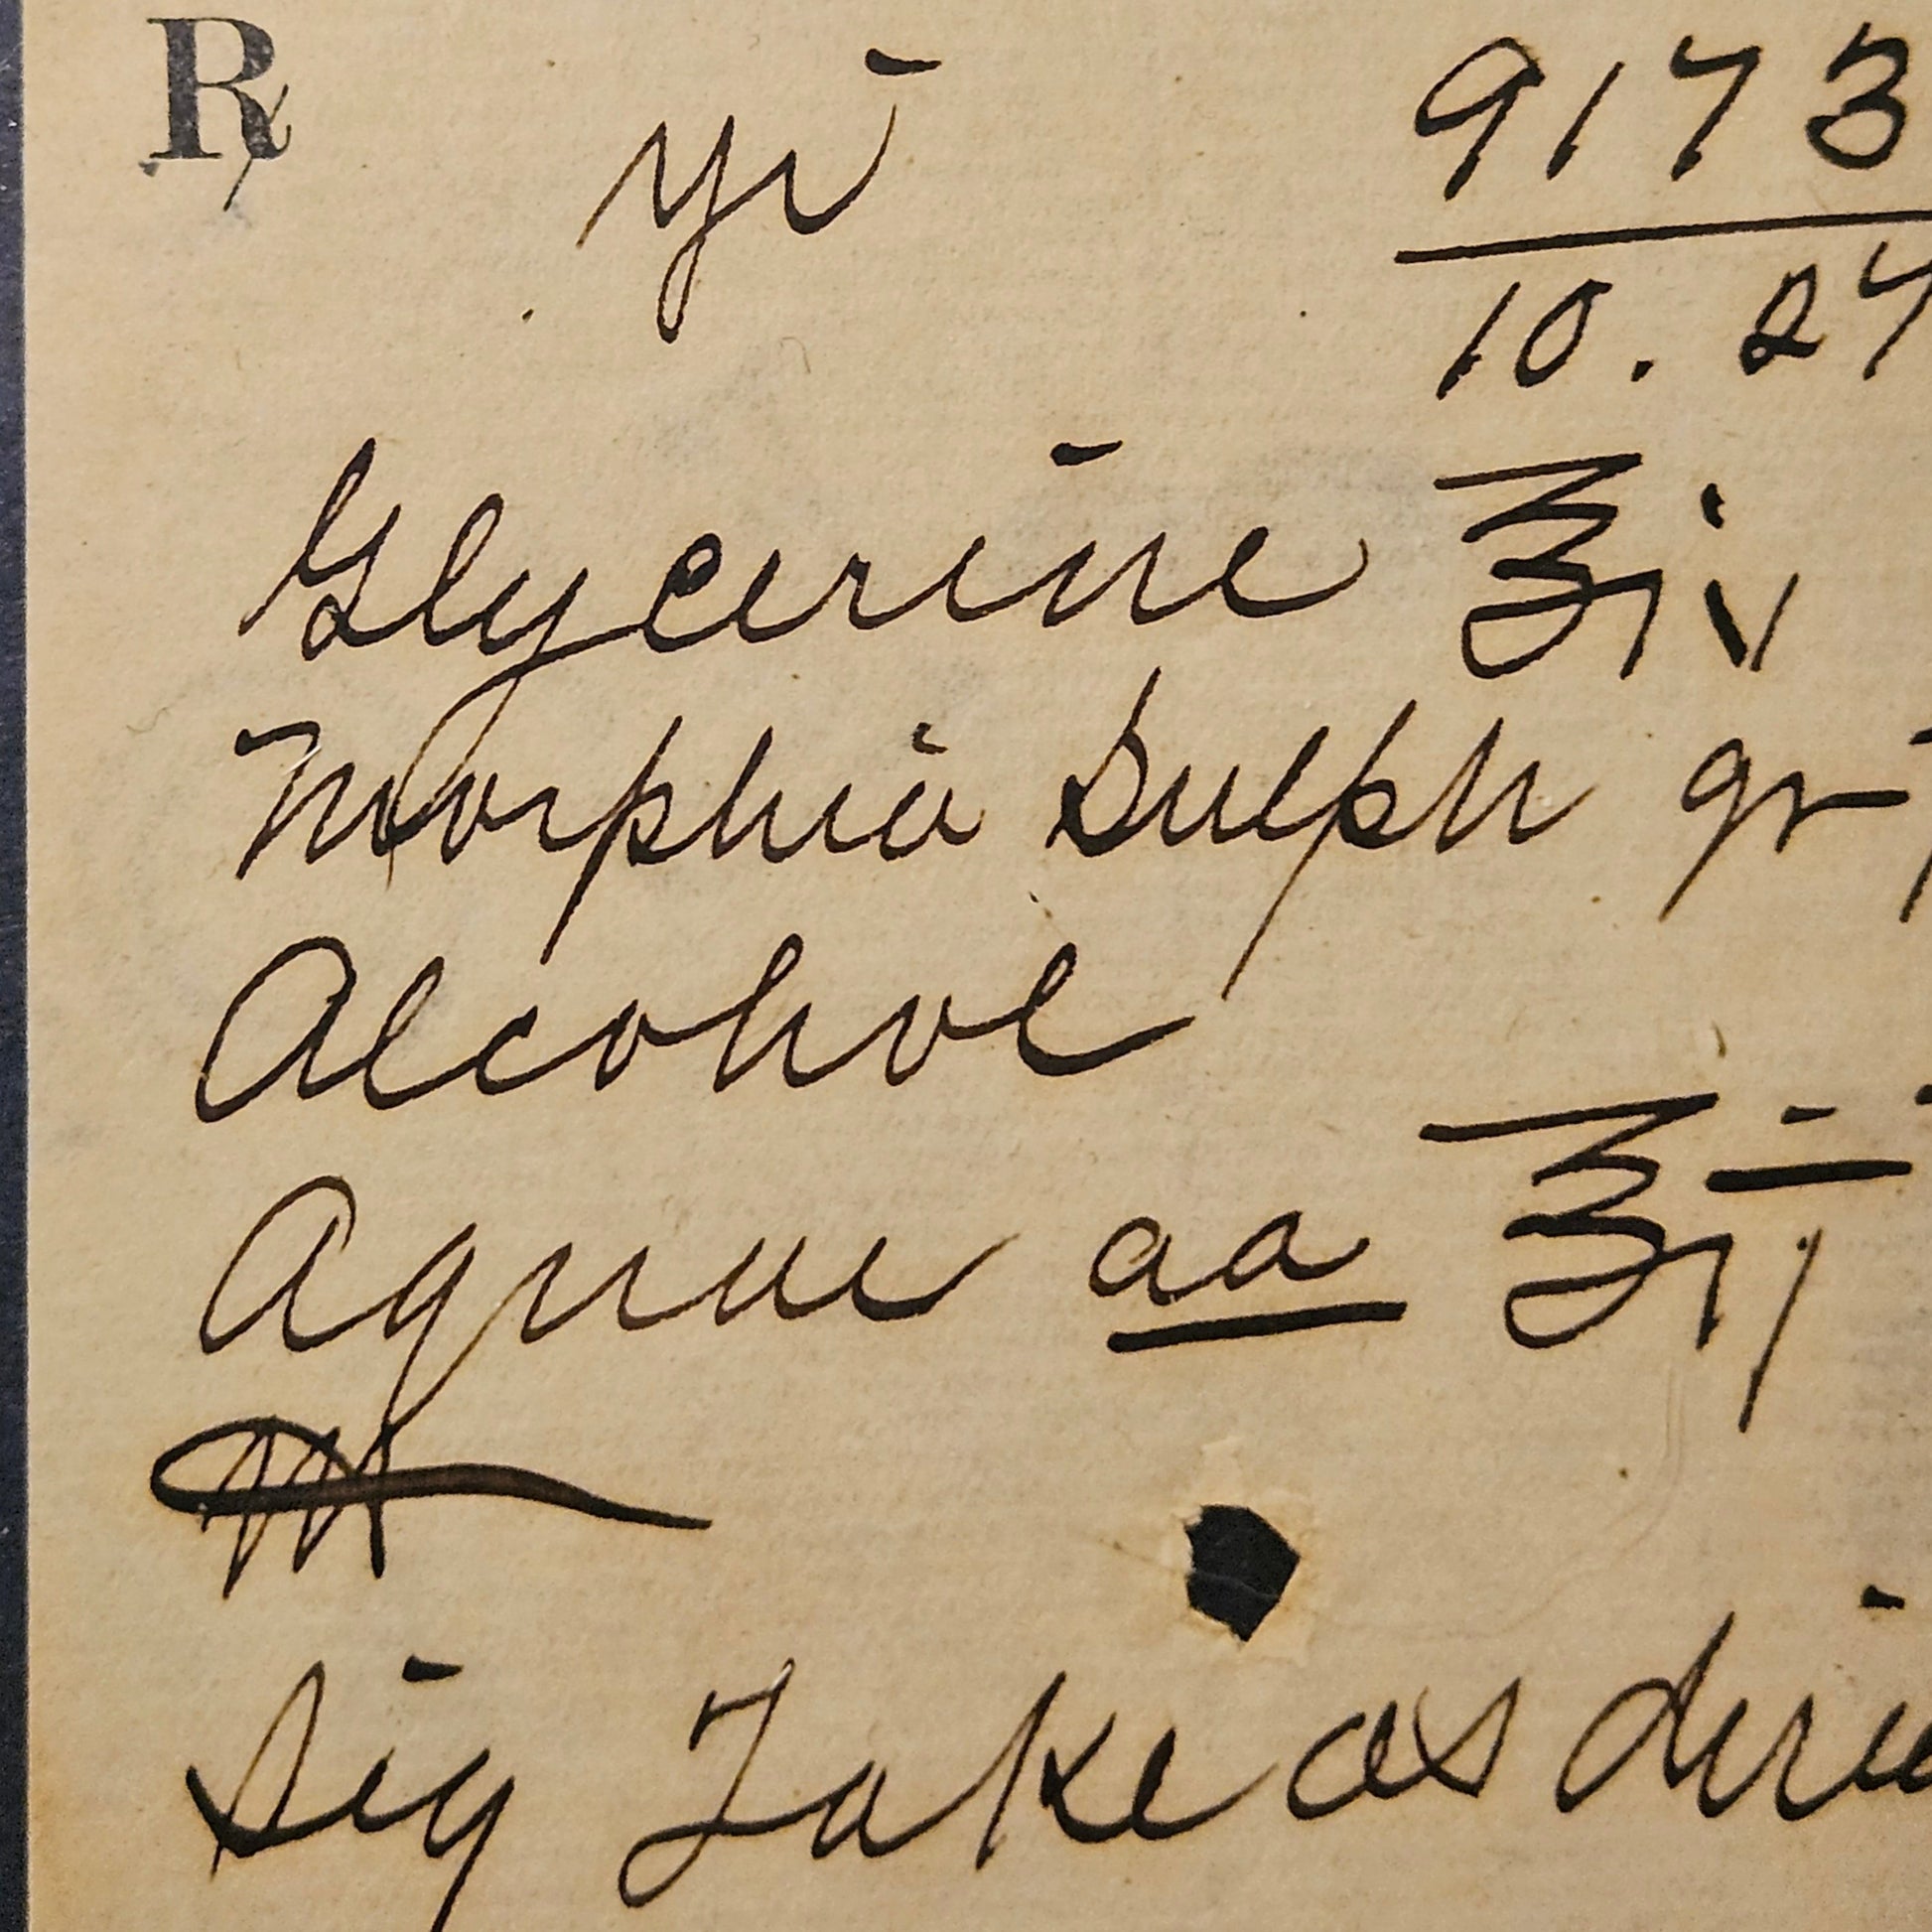 ℞
9173
10. 27
Glycerine ℥iv
Morphia Sulph gr
Alcohol
Aquae aa ℥ij
M
Sig Take as dire